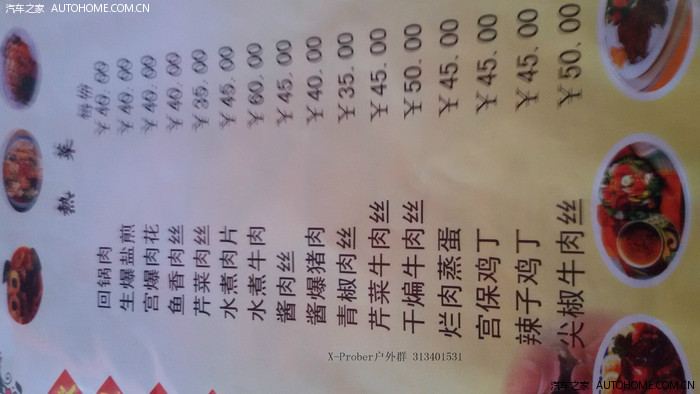 汽车之家 AUTOHOME.COM.CN
热菜
回锅肉 ￥40.00
生爆盐煎 ￥40.00
宫爆肉花 ￥40.00
鱼香肉丝 ￥40.00
芹菜肉丝 ￥35.00
水煮肉片 ￥45.00
水煮牛肉 ￥60.00
酱肉丝 ￥45.00
酱爆猪肉 ￥40.00
青椒肉丝 ￥35.00
芹菜牛肉丝 ￥45.00
干煸牛肉丝 ￥50.00
烂肉蒸蛋 ￥45.00
宫保鸡丁 ￥45.00
辣子鸡丁 ￥45.00
尖椒牛肉丝 ￥50.00
X-Prober户外群 313401531
汽车之家 AUTOHOME.COM.CN